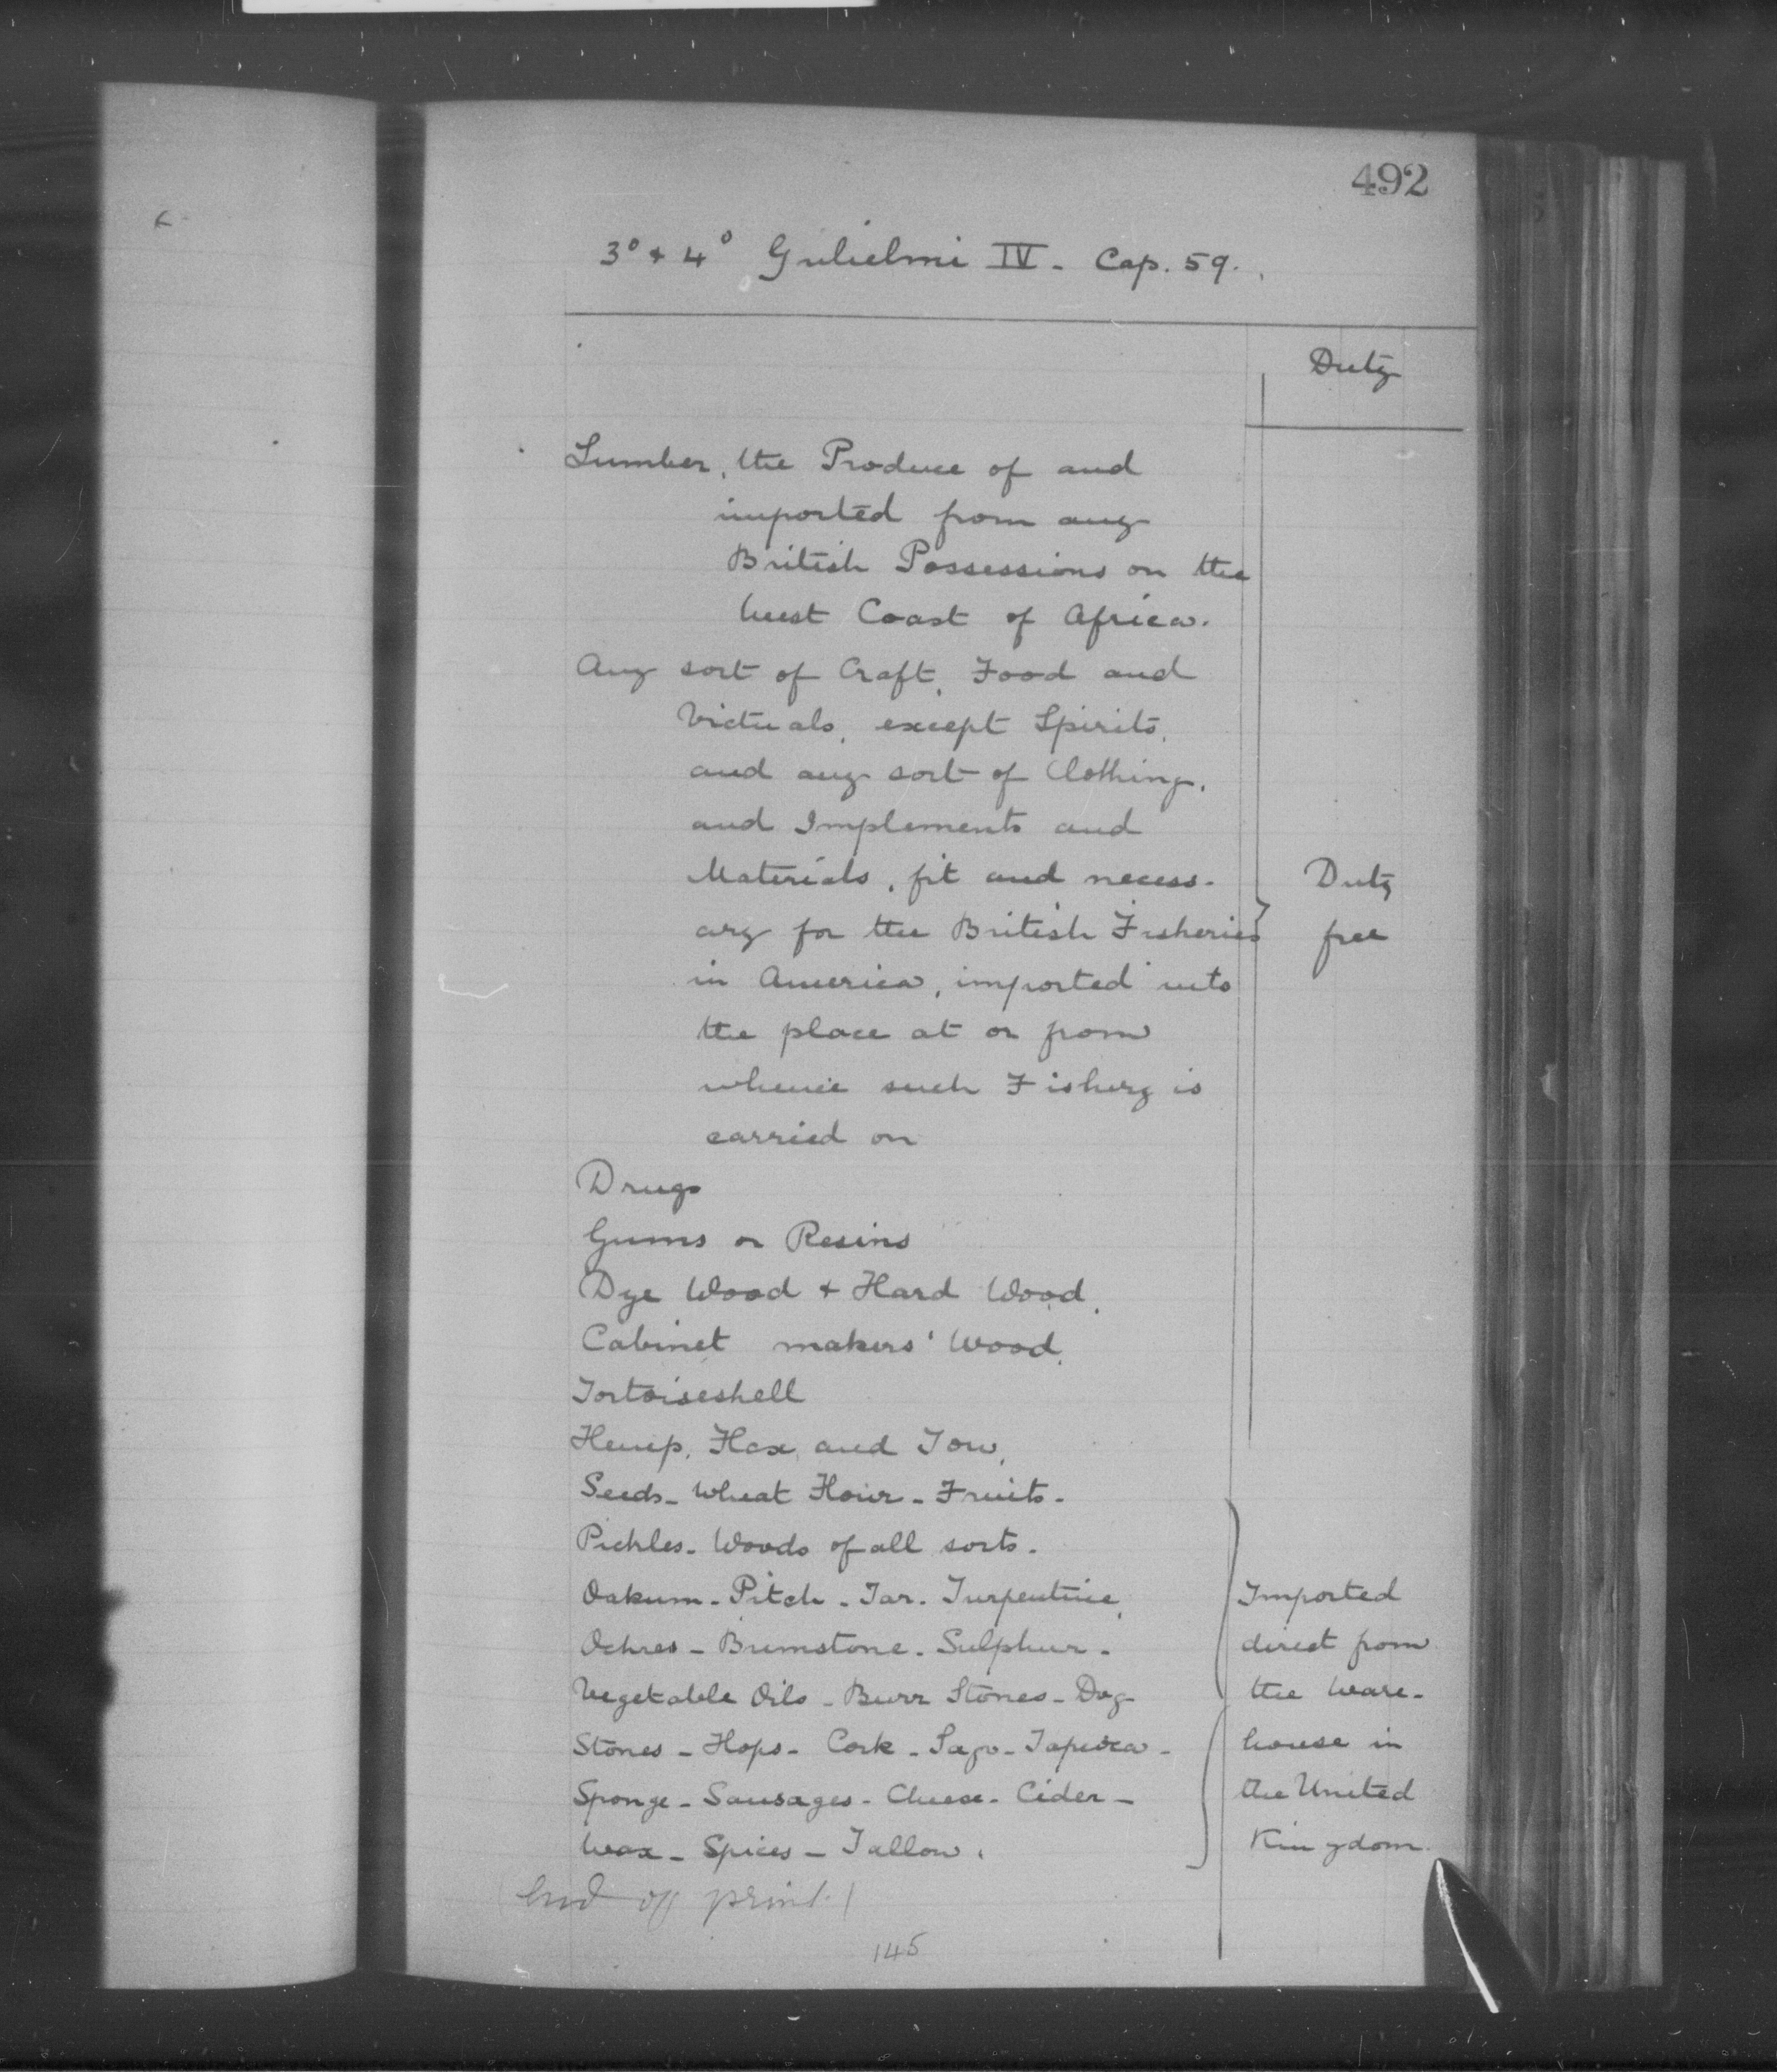 492
3° & 4° Gulielmi IV - Cap. 59.
Duty
Lumber, the Produce of and
imported from any
British Possessions on the
West Coast of Africa.
Any sort of Craft, Food and
Victuals, except Spirits,
and any sort of Clothing,
and Implements and
Materials, fit and necess-
ary for the British Fisheries
in America, imported into
the place at or from
whence such Fishery is
carried on
Duty
free
Drugs
Gums or Resins
Dye Wood & Hard Wood,
Cabinet makers' Wood,
Tortoiseshell
Hemp, Flax, and Tow,
Seeds - Wheat Flour - Fruits -
Pickles - Woods of all sorts -
Oakum - Pitch - Tar - Turpentine,
Ochres - Brimstone - Sulphur -
Vegetable Oils - Burr Stones - Dog
Stones - Hops - Cork - Sago - Tapioca -
Sponge - Sausages - Cheese - Cider -
Wax - Spices - Tallow.
Imported
direct from
the Ware-
house in
the United
Kingdom.
(End of print.)
145